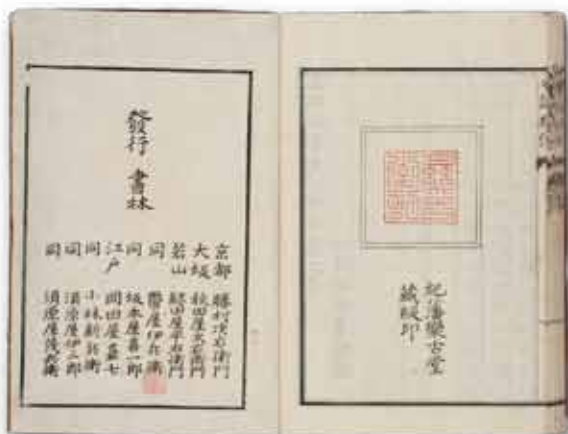 紀藩樂古堂
藏版印
發行 書林
京都 勝村治右衛門
大坂 秋田屋太右衛門
若山 綛田屋平右衛門
同 帶屋伊兵衛
同 坂本屋喜一郎
江戸 岡田屋嘉七
同 小林新兵衛
同 須原屋伊三郎
同 須原屋茂兵衛